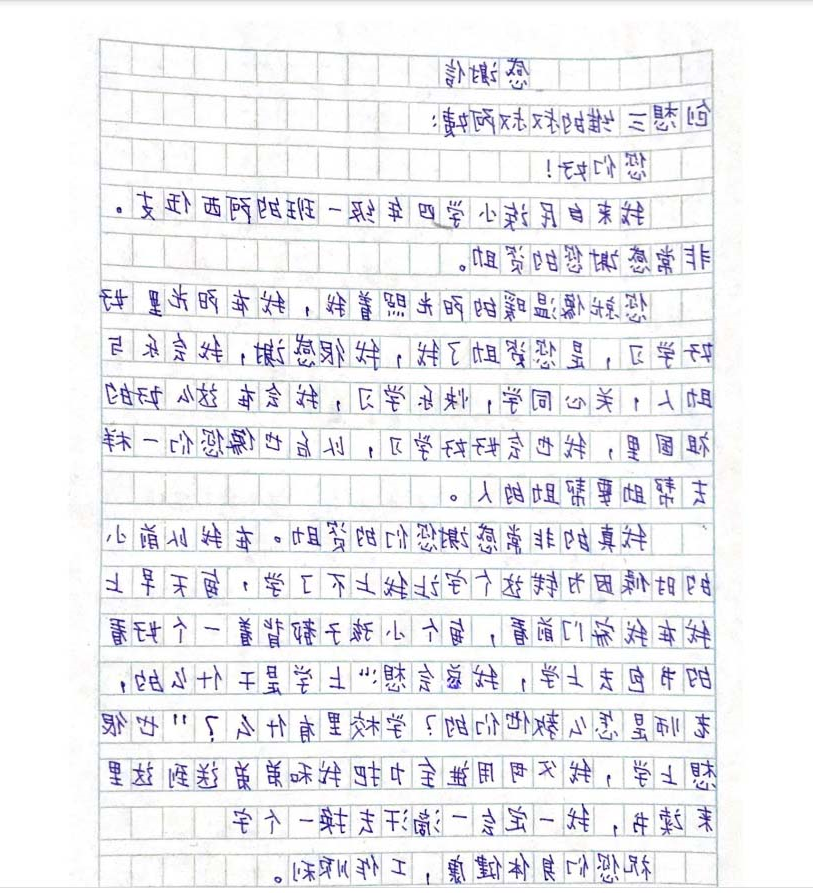 感谢信
创想三维的叔叔阿姨：
您们好！
我来自民族小学四年级一班的阿西伍支。
非常感谢您的资助。
您就像温暖的阳光照着我，我在阳光里好
好学习，是您资助了我，我很感谢，我会乐与
助人，关心同学，快乐学习，我会在这么好的
祖国里，我也会好好学习，以后也像您们一样
去帮助要帮助的人。
我真的非常感谢您们的资助。在我以前小
的时候因为钱这个字让我上不了学，每天早上
我在我家门前看，每个小孩子都背着一个好看
的书包去上学，我总会想“上学是干什么的，
老师是怎么教他们的？学校里有什么？”也很
想上学，我父母用进全力把我和弟弟送到这里
来读书，我一定会一滴汗去换一个字
祝您们身体健康，工作顺利。